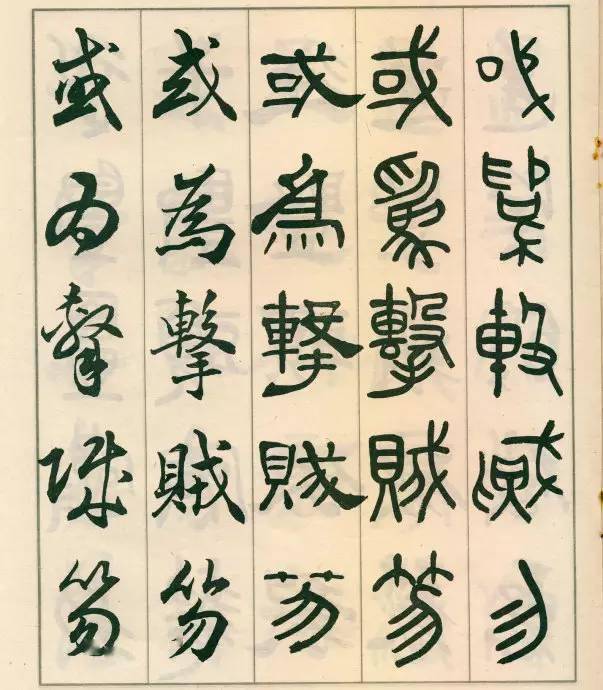 或為擊賊笏
或為擊賊笏
或為擊賊笏
或為擊賊笏
或為擊賊笏